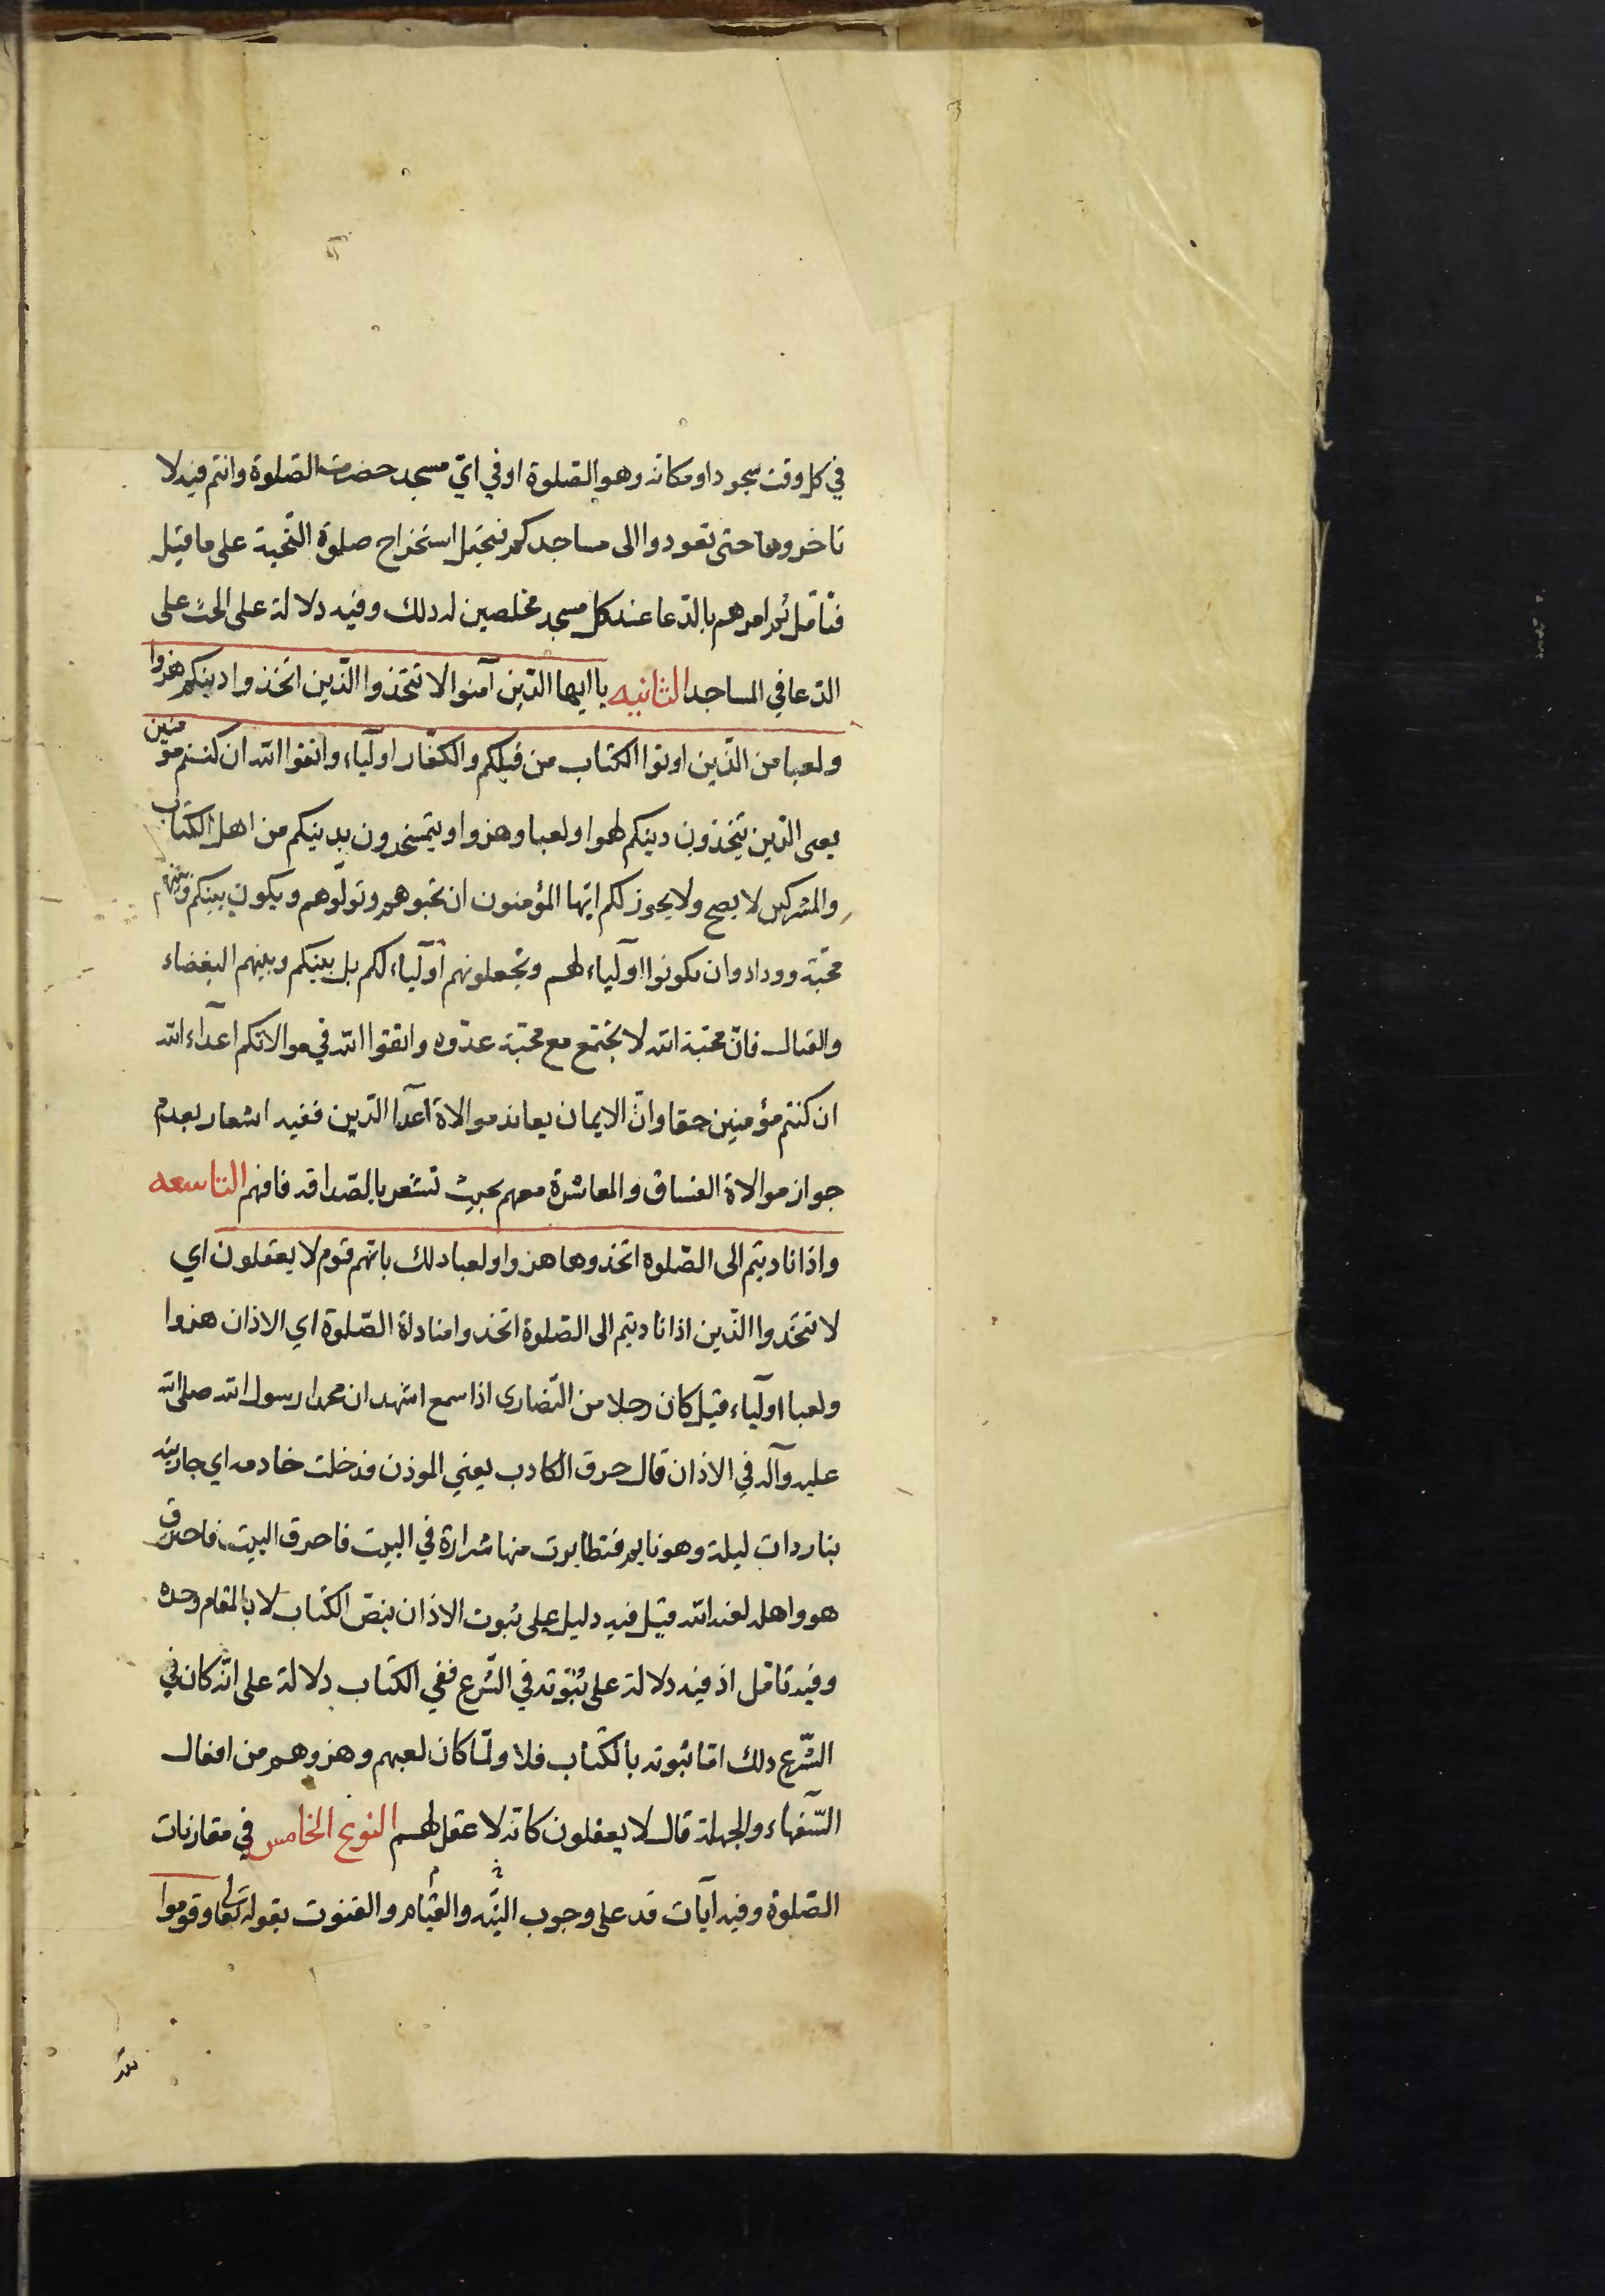 في كل وقت سجود او مكانه وهو الصلوة او في اي مسجد حضرت الصلوة وانتم فيه لا
تاخروها حتى تعودوا الى مساجدكم فيحتمل استخراج صلوة التحية على ما قيل
فتأمل ثم امرهم بالدعا عند كل مسجد مخلصين له ذلك وفيه دلالة على الحث على
الدعا في المساجد الثانيه يا ايها الذين آمنوا لا تتخذوا الذين اتخذوا دينكم هزوا
ولعبا من الذين اوتوا الكتاب من قبلكم والكفار اولياء واتقوا الله ان كنتم مؤمنين
يعني الذين يتخذون دينكم لهوا ولعبا وهزوا ويتمسخرون بدينكم من اهل الكتاب
والمشركين لا يصح ولا يجوز لكم ايها المؤمنون ان تحبوهم وتولوهم ويكون بينكم وبينهم
محبة ووداد وان تكونوا اولياء لهم وتجعلونهم اولياء لكم بل بينكم وبينهم البغضاء
والقتال فان محبة الله لا يجتمع مع محبة عدوه واتقوا الله في موالاتكم اعداء الله
ان كنتم مؤمنين حقا وان الايمان يعاند موالاة اعدا الدين ففيه اشعار بعدم
جواز موالاة الفساق والمعاشرة معهم بحيث تشعر بالصداقة فافهم التاسعه
واذا ناديتم الى الصلوة اتخذوها هزوا ولعبا ذلك بانهم قوم لا يعقلون اي
لا تتخذوا الذين اذا ناديتم الى الصلوة اتخذوا مناداة الصلوة اي الاذان هزوا
ولعبا اولياء قيل كان رجلا من النصارى اذا سمع اشهد ان محمدا رسول الله صلى الله
عليه وآله في الاذان قال حرق الكاذب يعني الموذن فدخلت خادمه اي جاريته
بنار ذات ليلة وهو نايم فتطايرت منها شرارة في البيت فاحرق البيت فاحترق
هو واهله لعنه الله قيل فيه دليل على ثبوت الاذان بنص الكتاب لا بالمقام وحده
وفيه تامل اذ فيه دلالة على ثبوته في الشرع ففي الكتاب دلالة على انه كان في
الشرع ذلك اما ثبوته بالكتاب فلا ولما كان لعبهم وهزوهم من افعال
السفهاء والجهلة قال لا يعقلون كانه لا عقل لهم النوع الخامس في مقارنات
الصلوة وفيه آيات قد على وجوب النية والقيام والقنوت بقوله تعالى وقوموا